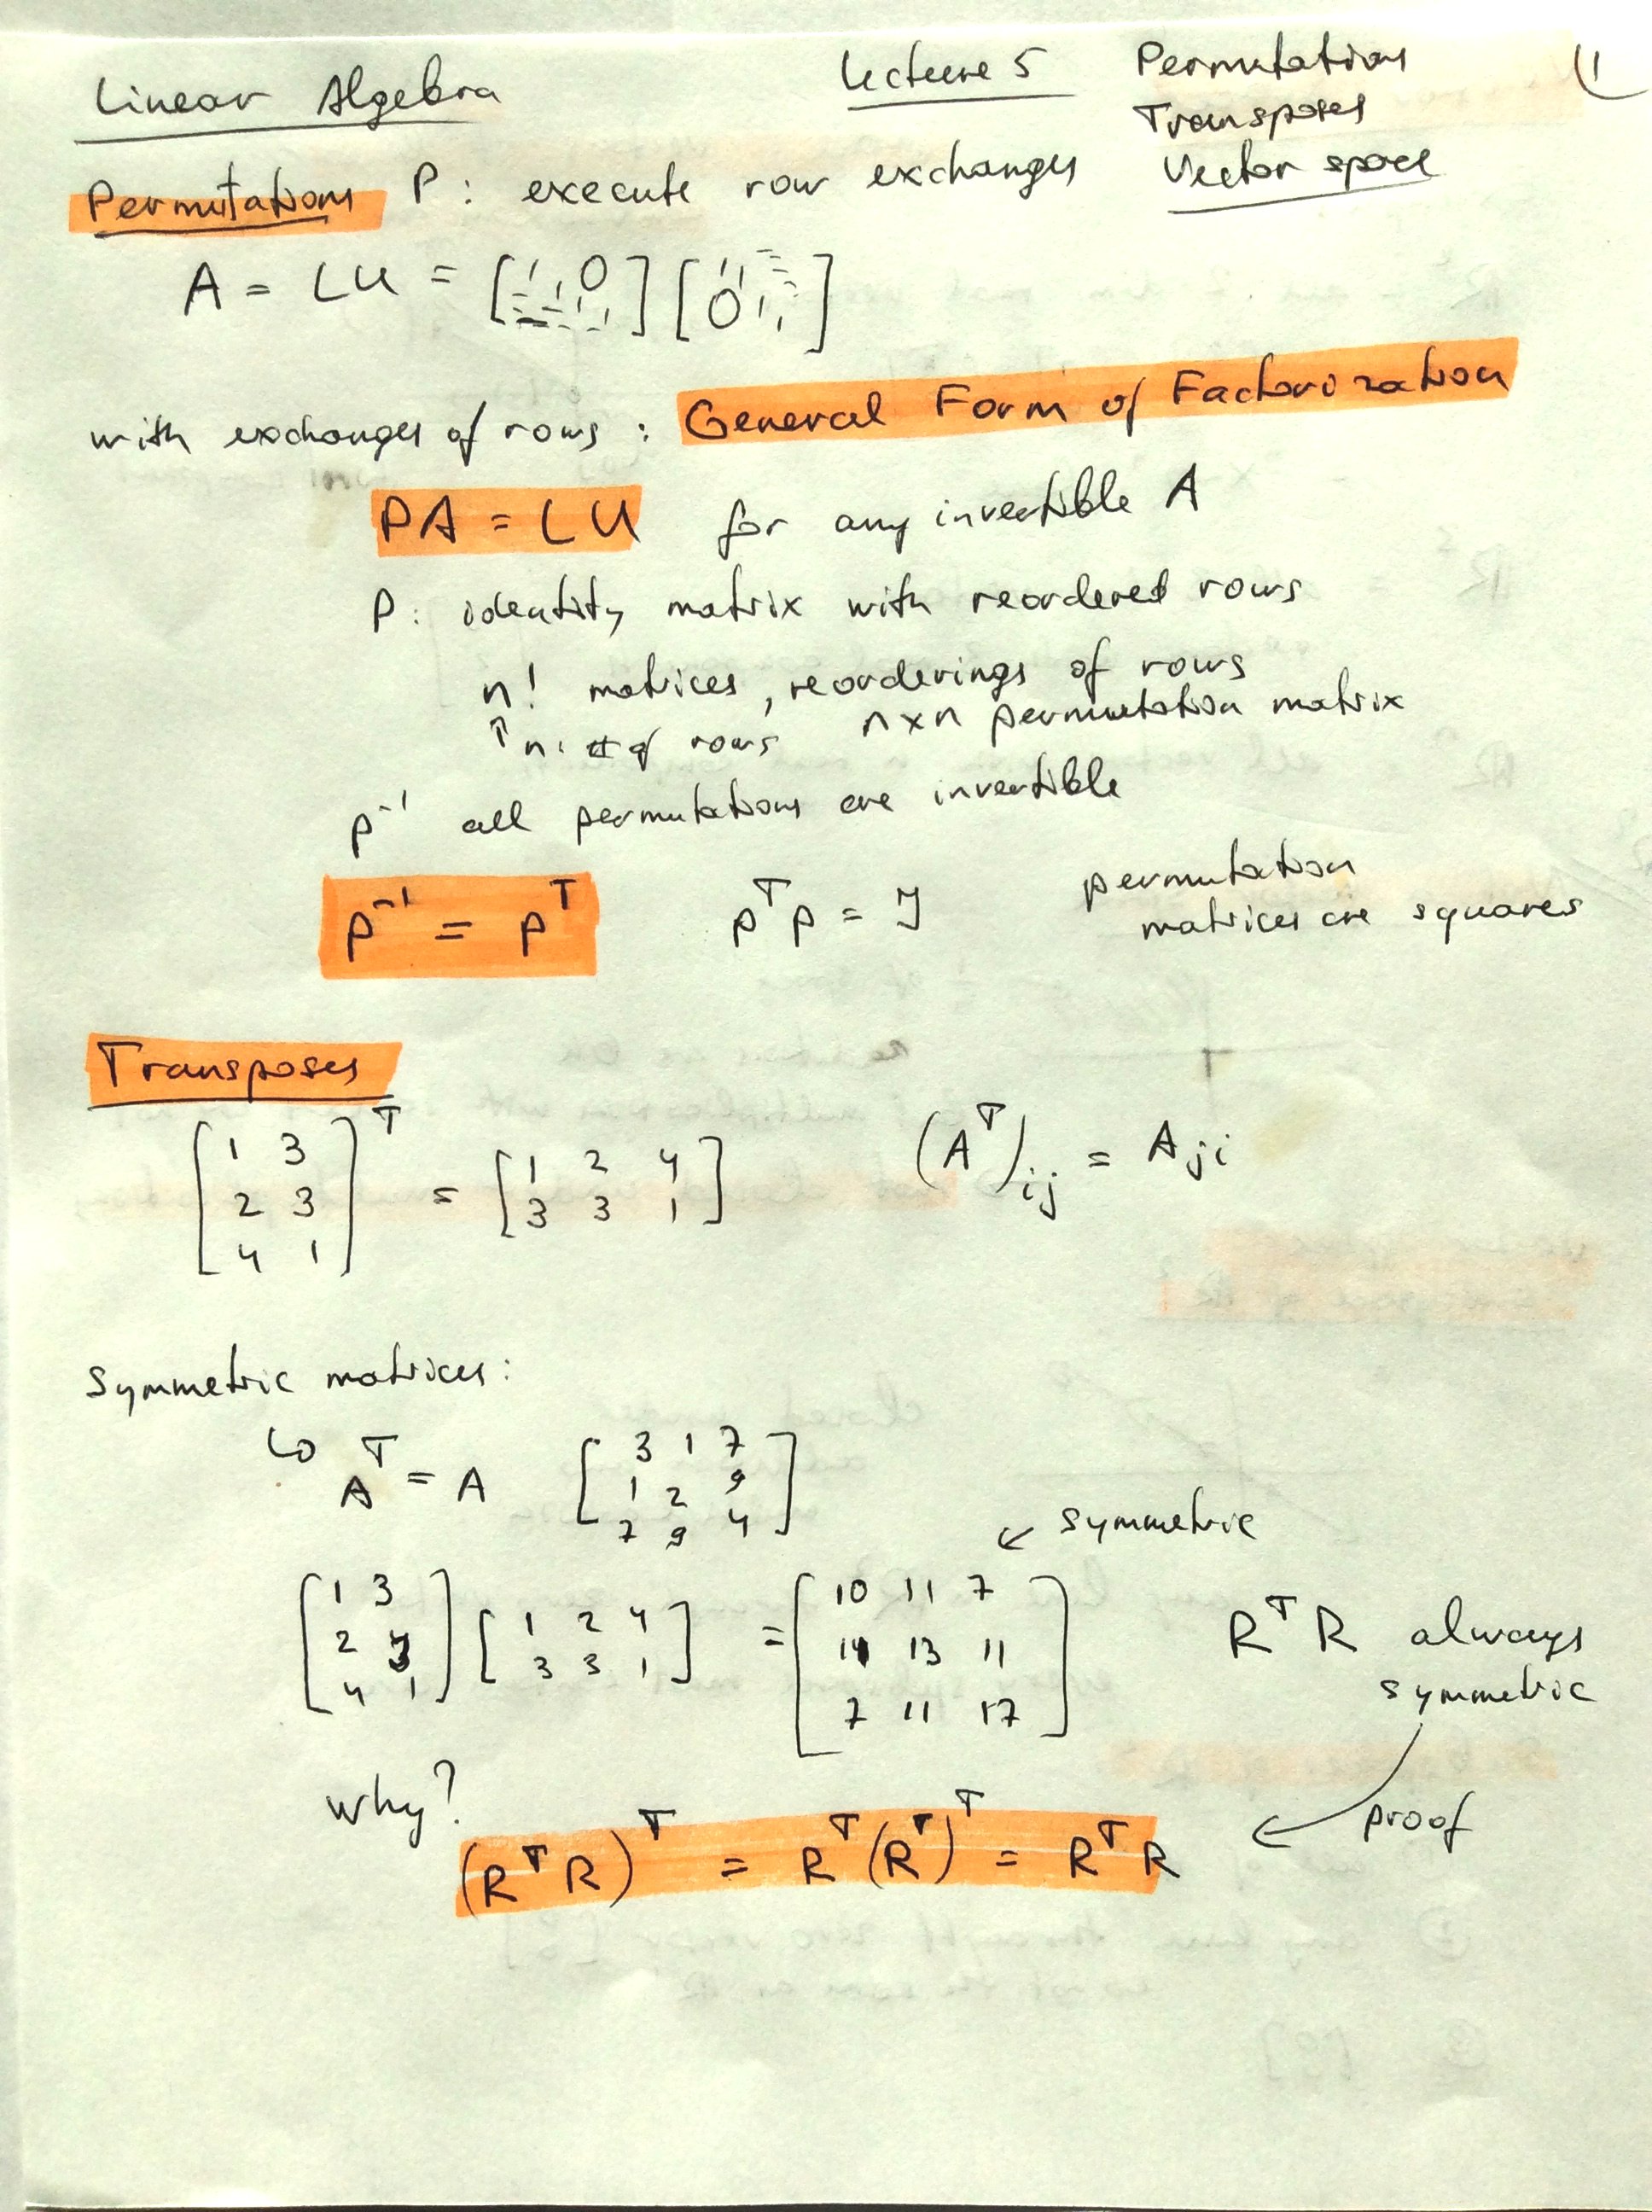 Linear Algebra
Lecture 5 Permutations
Transposes
Vector space
(1
Permutations P: execute row exchanges
A = LU = [ 1 0 1 1 ] [ 1 1 0 1 1 ]
with exchanges of rows : General Form of Factorization
PA = LU for any invertible A
P: identity matrix with reordered rows
n! matrices, reorderings of rows
↑ n: # of rows n×n permutation matrix
P⁻¹ all permutations are invertible
P⁻¹ = Pᵀ PᵀP = I permutation
matrices are squares
Transposes
[ 1 3
2 3
4 1 ]ᵀ = [ 1 2 4
3 3 1 ] (Aᵀ)ij = Aji
Symmetric matrices:
↳ Aᵀ = A [ 3 1 7
1 2 9
7 9 4 ]
↙ symmetric
[ 1 3
2 3
4 1 ] [ 1 2 4
3 3 1 ] = [ 10 11 7
11 13 11
7 11 17 ]
RᵀR always
symmetric
why?
(RᵀR)ᵀ = Rᵀ(Rᵀ)ᵀ = RᵀR ← proof